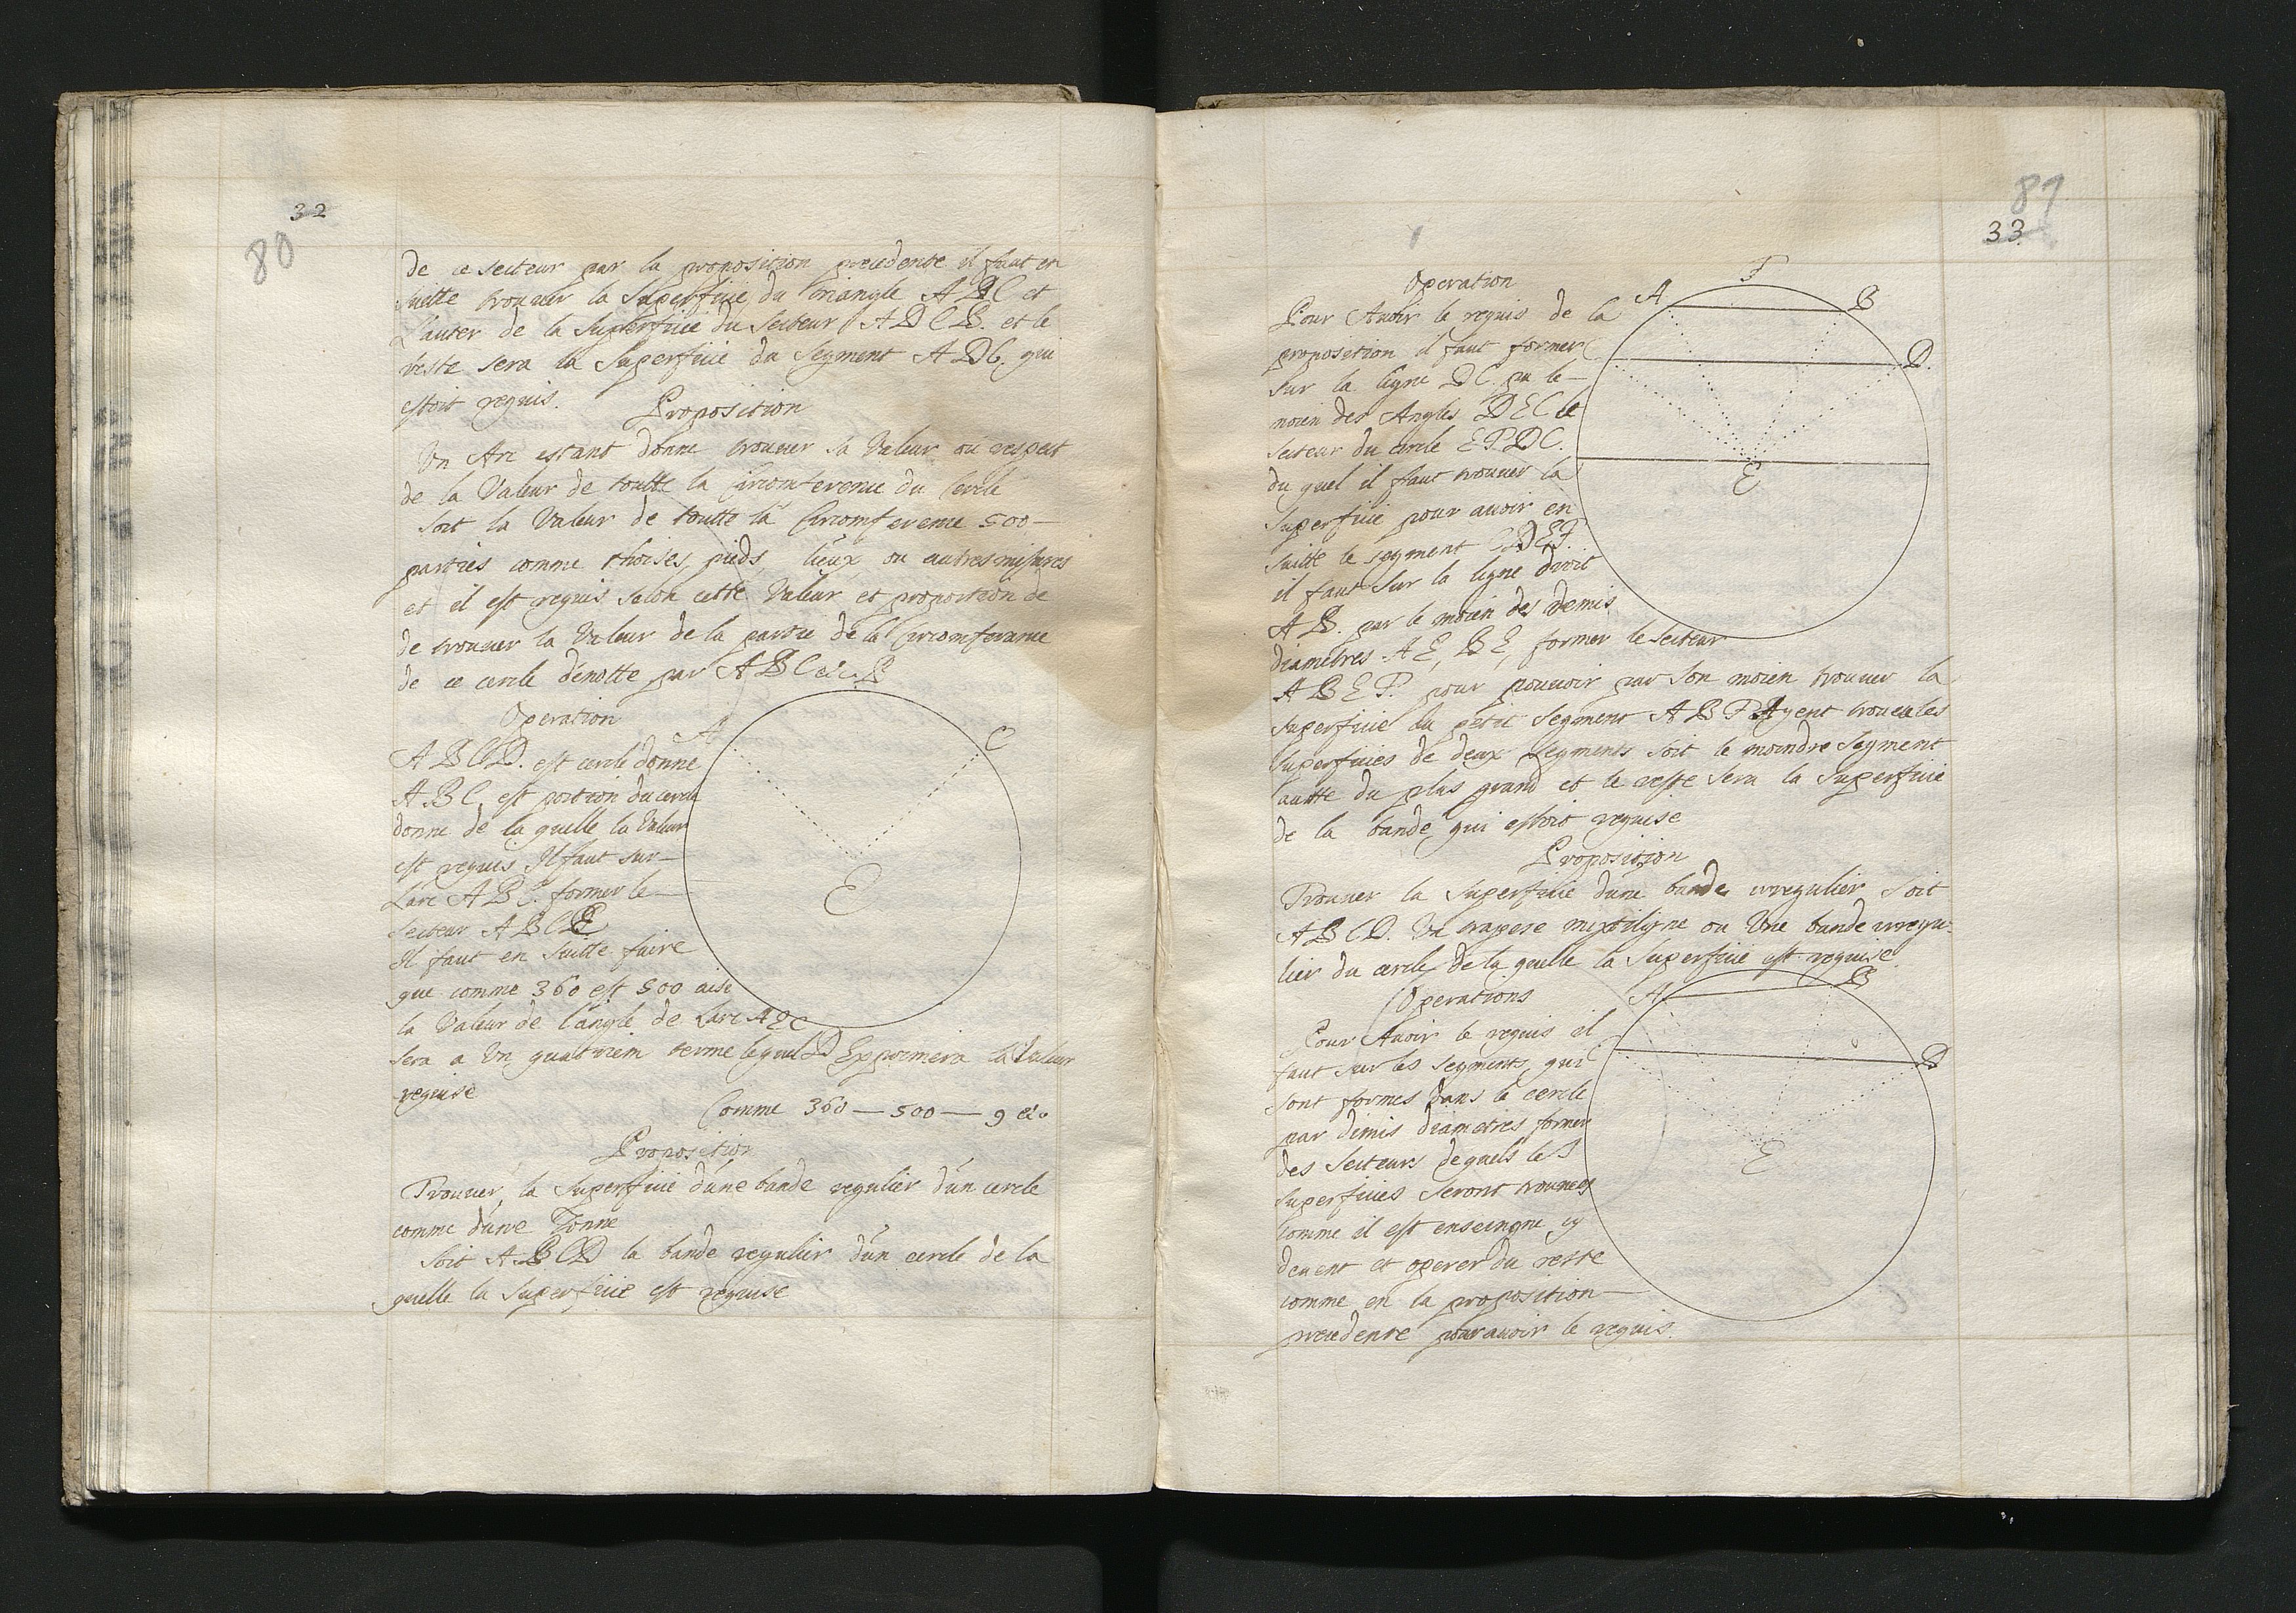 32
80
de ce secteur par la proposition precedente il faut en
suitte trouver la superficie du triangle ABC et
l'auter de la superficie du secteur ADCB. et le
reste sera la superficie du segment ADC qui
estoit requis.
Proposition
Un Arc estant donne trouver sa Valeur ou respect
de la Valeur de toutte la Circomference du Cercle
Soit la Valeur de toutte la Circomference 500 —
parties comme thoises, pieds, lieux ou autres mesures
et il est requis selon cette Valeur et proportion de
de trouver la Valeur de la partie de la Circomferance
de ce cercle denotte par ABC
B
Operation
A
C
ABCD. est cercle donne
ABC. est portion du cercle
donne de la quelle la Valeur
est requis Il faut sur —
L'arc ABC. former le —
Secteur ABCE
E
Il faut en suitte faire
que comme 360 est 500 aise
la Valeur de l'angle de L'arc AEC
sera a Un quatriem terme lequel Exprimera la Valeur
requise
Comme 360 — 500 — 9 &c.
Proposition
Trouver la superficie d'une bande regulier d'un cercle
comme d'une Zonne
Soit ABCD la bande regulier d'un cercle de la
quelle la superficie est requise
81
33
Operation
F
A
B
Pour Avoir le requis de la
proposition il faut former
D.
sur la ligne DC. pa le —
moien des Angles DEC le
secteur du cercle EFDC.
E
du quel il faut trouver la
superficie pour avoir en
suitte le segment CDEF.
il faut sur la ligne droit
AB. par le moien des demis
diametres AE, BE, former le secteur
ABEF. pour pouvoir par son moien trouver la
superficie du petit segment ABF Ayent trouve les
superficies de deux segments soit le moindre segment
autte du plus grand et le reste sera la superficie
de la bande qui estoit requise
Proposition
Trouver la superficie d'une bande irregulier soit
ABCD. Un trapese mixtiligne ou Une bande irregu-
lier du cercle de la quelle la superficie est requise
A
B
Operations
Pour Avoir le requis il
faut sur les segments, qui
D
sont formes dans le cercle
par dimis diametres former
des secteurs desquels les
E
superficies seront trouvees
comme il est enseingne cy
devent et operer du reste
comme en la proposition —
precedente pour avoir le requis.